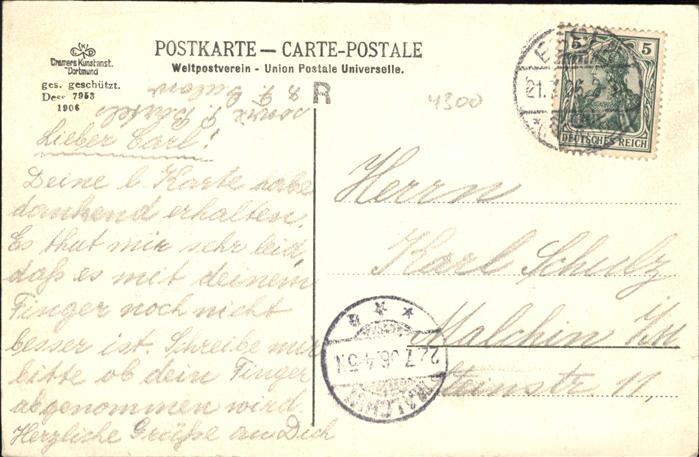 Cramers Kunstanst.
Dortmund
ges. geschützt.
Dess 7953
1906
POSTKARTE – CARTE-POSTALE
Weltpostverein - Union Postale Universelle.
R
4300
5 5
DEUTSCHES REICH
21.7.06
Lieber Carl!
Deine l. Karte habe
dankend erhalten.
Es thut mir sehr leid,
daß es mit deinem
Finger noch nicht
besser ist. Schreibe mir
bitte ob dein Finger
abgenommen wird.
Herzliche Grüße an Dich
sowie
Herrn
Karl Schulz
Malchin
Steinstr. 11,
MALCHIN
22.7.06.4-5N